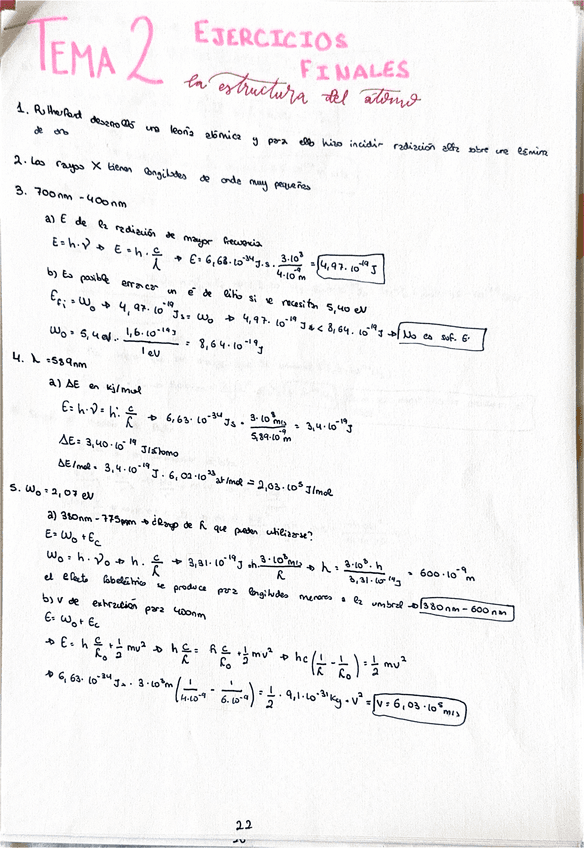 TEMA 2 EJERCICIOS FINALES
la estructura del átomo
1. Rutherford desarrolló una teoría atómica y para ello hizo incidir radiación alfa sobre una lámina
de oro
2. Los rayos X tienen longitudes de onda muy pequeñas
3. 700nm - 400nm
a) E de la radiación de mayor frecuencia
E = h · ν → E = h · c/λ → E = 6,63 · 10⁻³⁴ J·s · 3·10⁸/4·10⁻⁹ m = 4,97 · 10⁻¹⁹ J
b) Es posible arrancar un e⁻ de litio si se necesitan 5,40 eV
W₀ = 5,4 eV · 1,6·10⁻¹⁹ J/1 eV = 8,64·10⁻¹⁹ J
4. λ = 589nm
a) ΔE en KJ/mol
E = h · ν = h · c/λ → 6,63 · 10⁻³⁴ Js · 3·10⁸ m/s/5,89·10⁻⁹ m = 3,4·10⁻¹⁹ J
ΔE = 3,40·10⁻¹⁹ J/átomo
ΔE/mol = 3,4·10⁻¹⁹ J · 6,02·10²³ at/mol = 2,03·10⁵ J/mol
5. W₀ = 2,07 eV
a) 380nm - 775nm → rango de λ que pueden utilizarse?
E = W₀ + Ec
W₀ = h · ν₀ → h · c/λ → 3,31·10⁻¹⁹ J = h 3·10⁸ m/s/λ → λ = 3·10⁸ · h/3,31·10⁻¹⁹ J = 600·10⁻⁹ m
el efecto fotoeléctrico se produce para longitudes menores a la umbral → 380nm - 600nm
b) V de extracción para 400nm
E = W₀ + Ec
→ E = h c/λ₀ + 1/2 mv² → h c/λ = h c/λ₀ + 1/2 mv² → hc (1/λ - 1/λ₀) = 1/2 mv²
→ 6,63·10⁻³⁴ J · 3·10⁸ m (1/4·10⁻⁹ - 1/6·10⁻⁹) = 1/2 · 9,1·10⁻³¹ Kg · V² = V = 6,03·10⁵ m/s
22